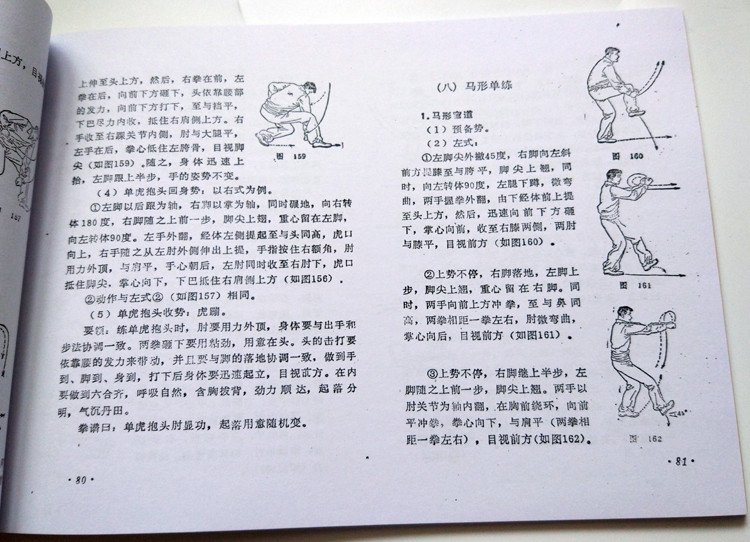 上方，目
157
上伸至头上方，然后，右拳在前，左
拳在后，向前下方砸下，头依靠腰部
的发力，向前下方打下，至与裆平，
下巴尽力内收，抵住右肩侧上方。右
手收至右踝关节内侧，肘与大腿平，
左手在后，拳心抵住左胯背，目视脚
尖（如图159）。随之，身体迅速上
抬，左脚跟上半步，手的姿势不变。
图 159
（4）单虎抱头回身势：以右式为例。
①左脚以后跟为轴，右脚以掌为轴，同时碾地，向右转
体180度，右脚随之上前一步，脚尖上翘，重心留在左脚，
向左转体90度。左手外翻，经体左侧提起至与头同高，虎口
向上，右手随之从左肘外侧伸出上提，手指按住右额角，肘
用力外顶，与肩平，手心朝后，左肘同时收至右肘下，虎口
抵住脚尖，掌心向下，下巴抵住右肩侧上方（如图156）。
②动作与左式②（如图157）相同。
（5）单虎抱头收势：虎蹦。
要领：练单虎抱头时，肘要用力外顶，身体要与出手和
步法协调一致。两拳砸下要用粘劲，用意在头。头的击打要
依靠腰的发力来带动，并且要与脚的落地协调一致，做到手
到、脚到、身到，打下后身体要迅速起立，目视贰方。在内
要做到六合齐，呼吸自然，含胸拔背，劲力顺达，起落分
明，气沉丹田。
拳谱曰：单虎抱头肘显功，起落用意随机变。
·80·
（八）马形单练
1.马形直道
（1）预备势。
（2）左式：
①左脚尖外撇45度，右脚向左斜
前方提膝至与胯平，脚尖上翘，同
时，向左转体90度，左腿下蹲，微弯
曲，两手握拳外翻，由下经体前上提
至头上方，然后，迅速向前下方砸
下，掌心向前，收至右膝两侧，两肘
与膝平，目视前方（如图160）。
图 160
②上势不停，右脚落地，左脚上
步，脚尖上翘，重心留在右脚。同
时，两手向前上方冲拳，至与鼻同
高，两拳相距一拳左右，肘微弯曲，
掌心向后，目视前方（如图161）。
图 161
③上势不停，右脚继上半步，左
脚随之上前一步，脚尖上翘。两手以
肘关节为轴内翻，在胸前绕环，向前
平冲拳，拳心向下，与肩平（两拳相
距一拳左右），目视前方（如图162）。
45°
图 162
·81·